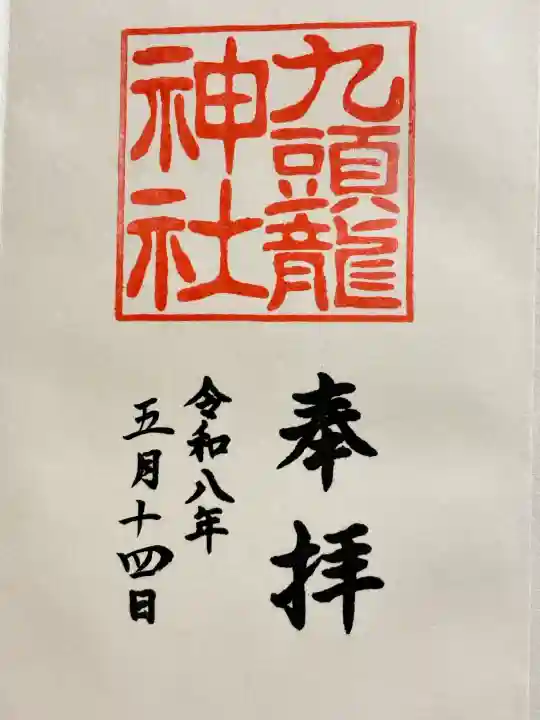 九頭龍
神社
奉拝
令和八年
五月十四日